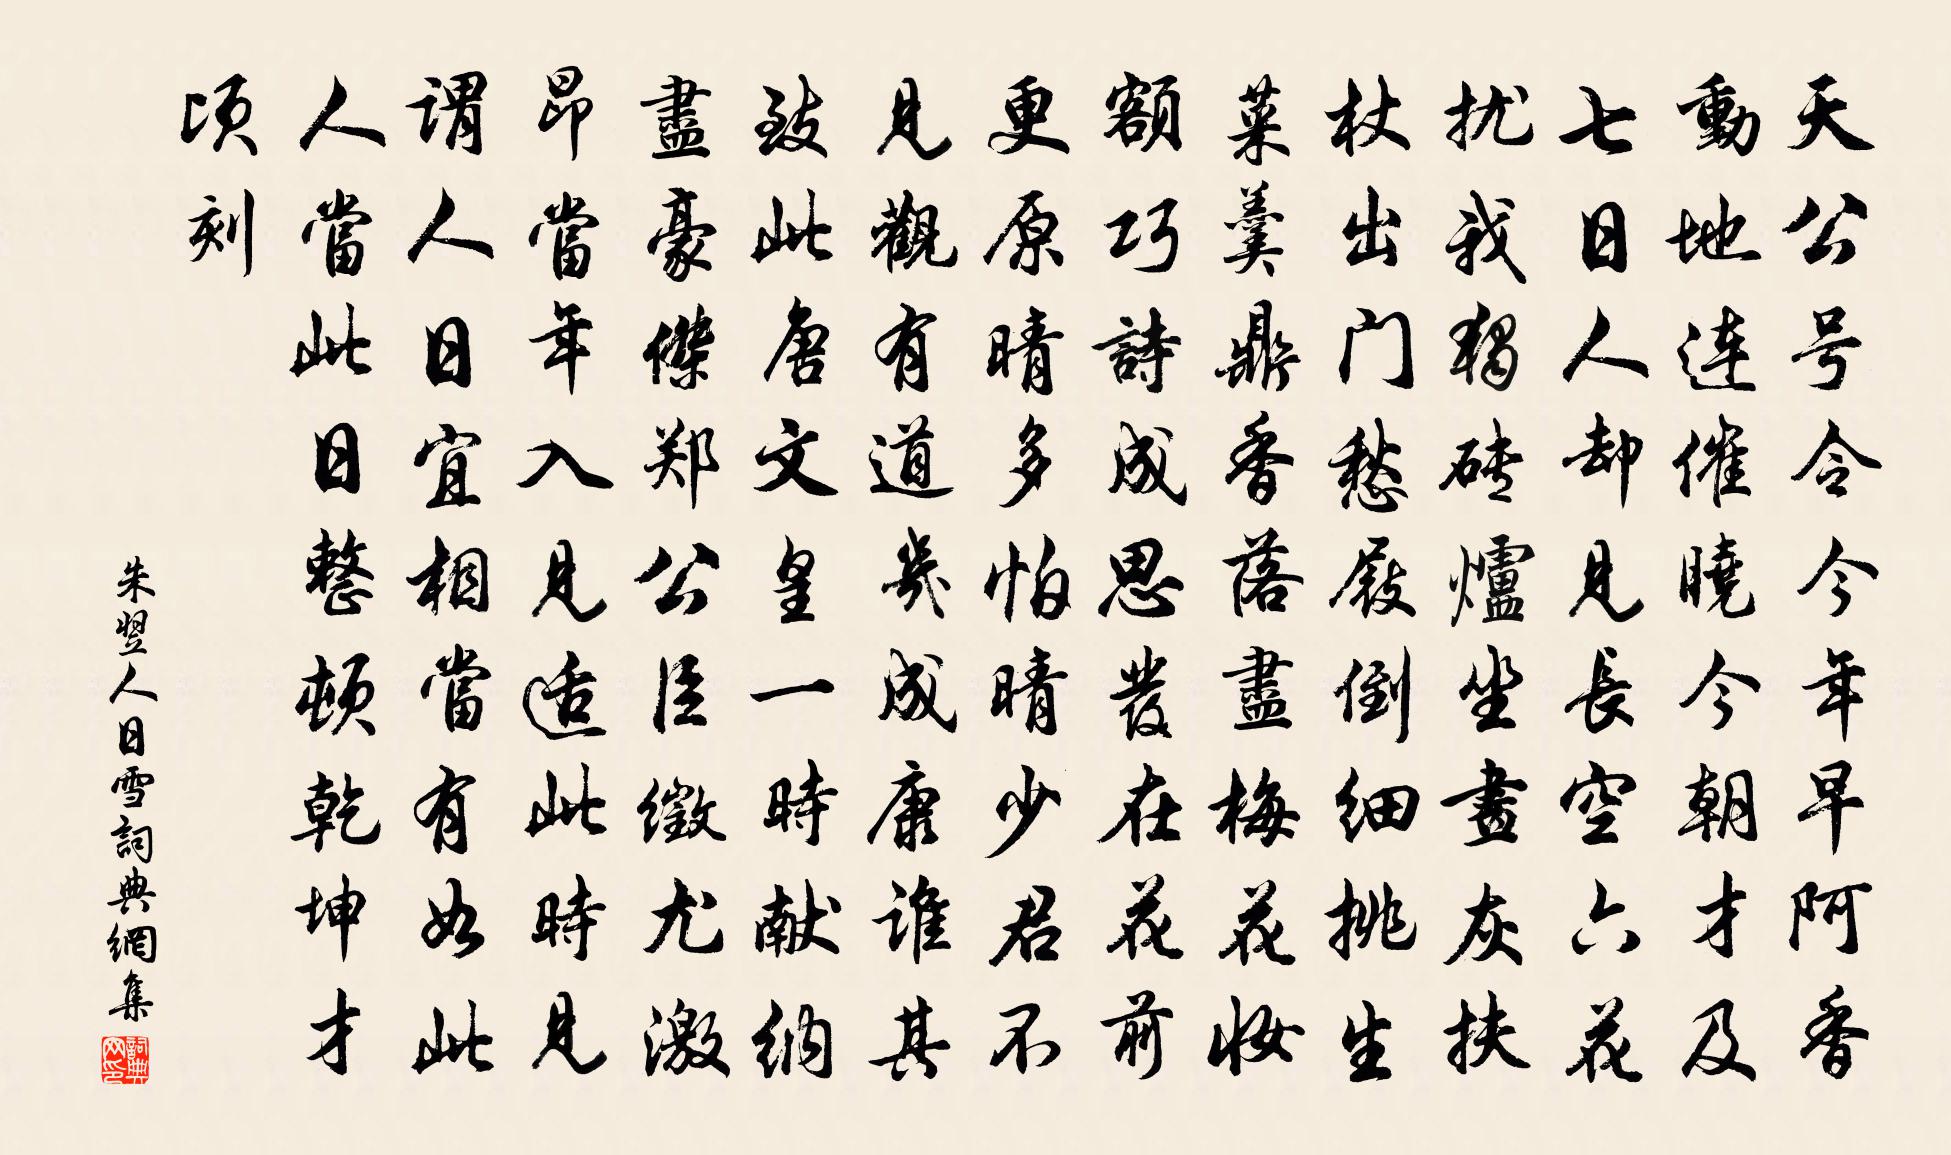 天公号令今年早阿香
動地连催曉今朝才及
七日人却見長空六花
扰我獨砖爐坐畫灰扶
杖出门愁屐倒细挑生
菜羹鼎香落盡梅花妆
額巧詩成思發在花前
更原晴多怕晴少君不
見觀有道幾成康谁其
致此唐文皇一時献纳
盡豪傑郑公臣徵尤激
昂當年入見适此時見
謂人日宜相當有如此
人當此日整頓乾坤才
頃刻
朱翌人日雪詞典網集
詞典网印